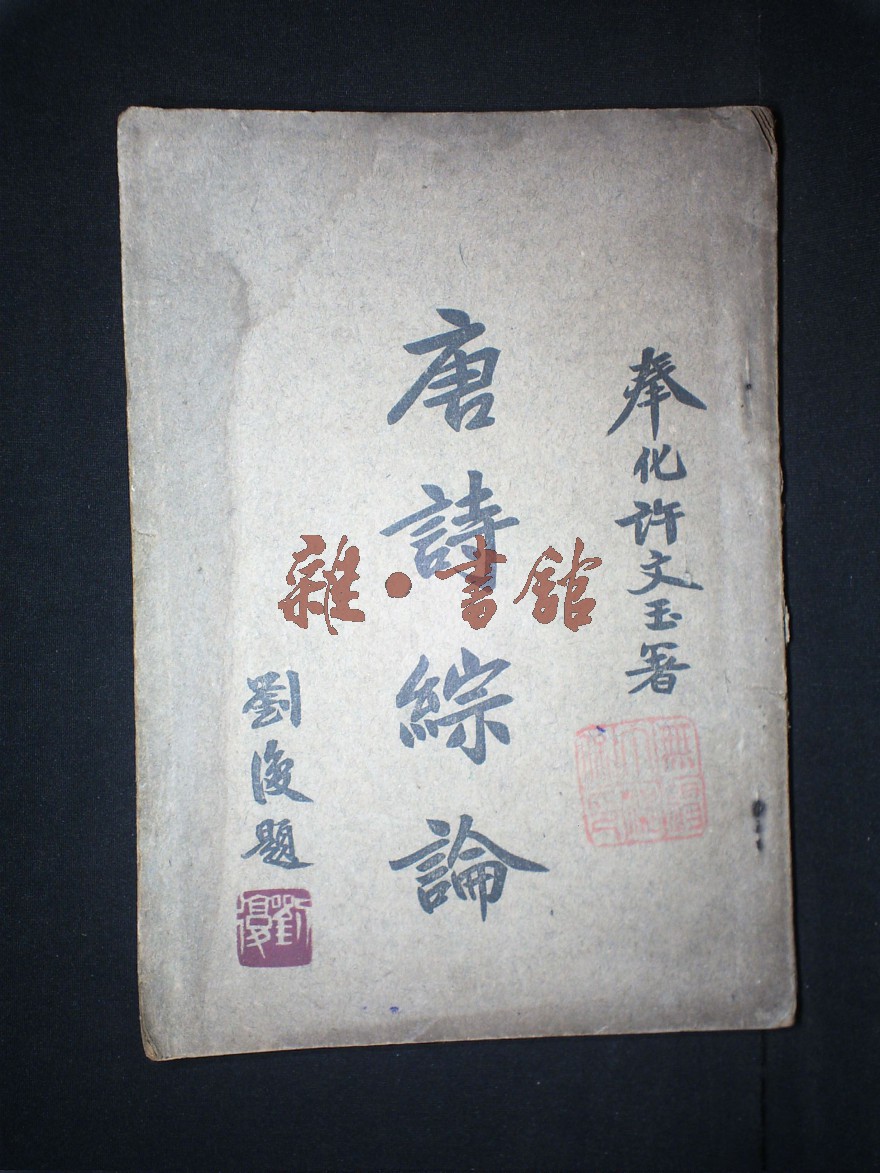 奉化許文玉著
唐詩綜論
劉復題
劉復
雜·書館